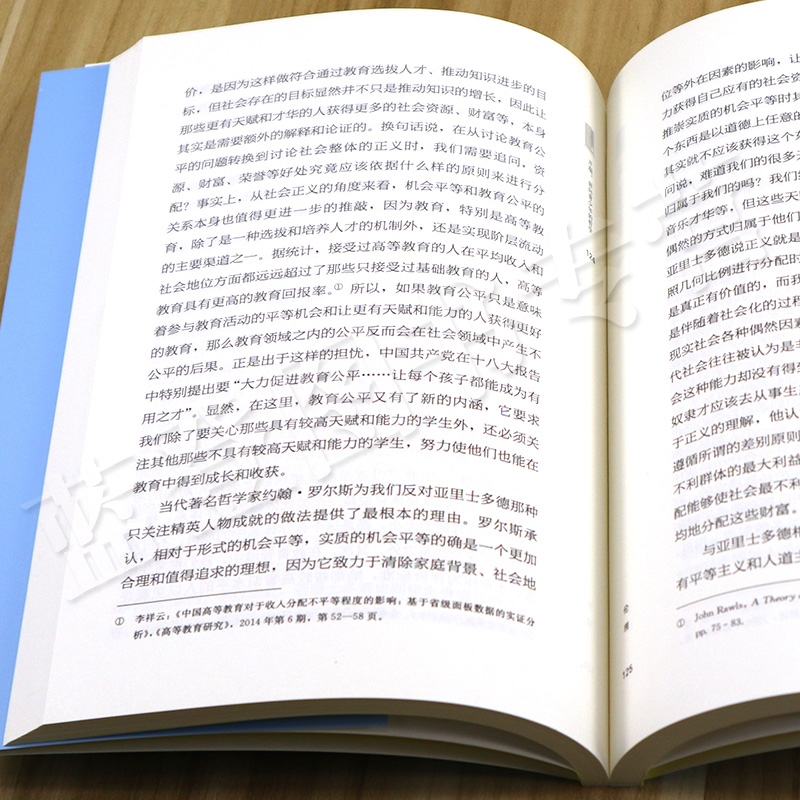 价，是因为这样做符合通过教育选拔人才、推动知识进步的目
标，但社会存在的目标显然并不只是推动知识的增长，因此让
那些更有天赋和才华的人获得更多的社会资源、财富等，本身
其实是需要额外的解释和论证的。换句话说，在从讨论教育公
平的问题转换到讨论社会整体的正义时，我们需要追问，资
源、财富、荣誉等好处究竟应该依据什么样的原则来进行分
配？事实上，从社会正义的角度来看，机会平等和教育公平的
关系本身也值得更进一步的推敲，因为教育，特别是高等教
育，除了是一种选拔和培养人才的机制外，还是实现阶层流动
的主要渠道之一。据统计，接受过高等教育的人在平均收入和
社会地位方面都远远超过了那些只接受过基础教育的人，高等
教育具有更高的教育回报率。① 所以，如果教育公平只是意味
着参与教育活动的平等机会和让更有天赋和能力的人获得更好
的教育，那么教育领域之内的公平反而会在社会领域中产生不
公平的后果。正是出于这样的担忧，中国共产党在十八大报告
中特别提出要“大力促进教育公平……让每个孩子都能成为有
用之才”。显然，在这里，教育公平又有了新的内涵，它要求
我们除了要关心那些具有较高天赋和能力的学生外，还必须关
注其他那些不具有较高天赋和能力的学生，努力使他们也能在
教育中得到成长和收获。
当代著名哲学家约翰·罗尔斯为我们反对亚里士多德那种
只关注精英人物成就的做法提供了最根本的理由。罗尔斯承
认，相对于形式的机会平等，实质的机会平等的确是一个更加
合理和值得追求的理想，因为它致力于清除家庭背景、社会地
① 李祥云：《中国高等教育对于收入分配不平等程度的影响：基于省级面板数据的实证分
析》，《高等教育研究》，2014 年第 6 期，第 52—58 页。
124
位等外在因素的影响，让
力获得自己应有的社会资
推崇实质的机会平等时其
个东西是以道德上任意的
其实就不应该获得这个东
问说，难道我们的很多天
归属于我们的吗？我们
音乐才华等，但这些天
偶然的方式归属于他们
亚里士多德说正义就是
照几何比例进行分配时
是真正有价值的，而我
是伴随着社会化的过程
现实社会各种偶然因
代社会往往被认为是
会这种能力却没有得
奴隶才应该去从事生
于正义的理解，他认
遵循所谓的差别原则
不利群体的最大利益
配能够使社会最不利
均地分配这些财富。
与亚里士多德相
有平等主义和人道主
① John Rawls, A Theory
pp. 75-83.
125